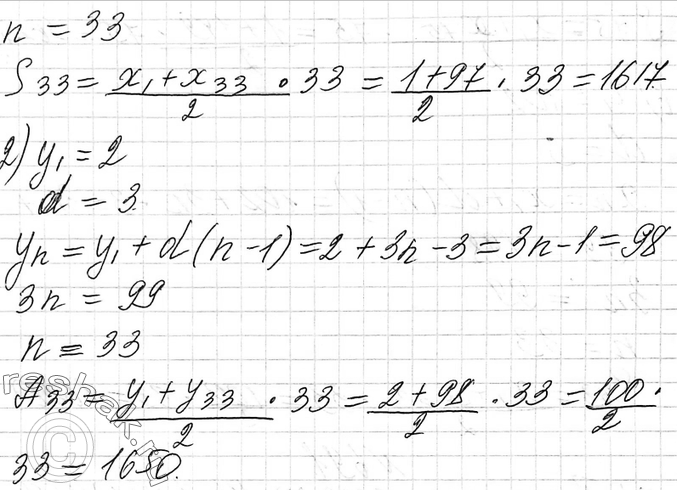 n = 33
S33 = (x1 + x33)/2 · 33 = (1+97)/2 · 33 = 1617
2) y1 = 2
d = 3
yn = y1 + d(n-1) = 2 + 3n - 3 = 3n - 1 = 98
3n = 99
n = 33
A33 = (y1 + y33)/2 · 33 = (2+98)/2 · 33 = 100/2 ·
33 = 1650.
reshak.ru